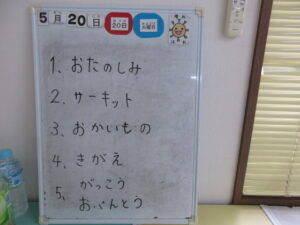 5月20日
20日
1、おたのしみ
2、サーキット
3、おかいもの
4、きがえ
5、がっこう
おべんとう